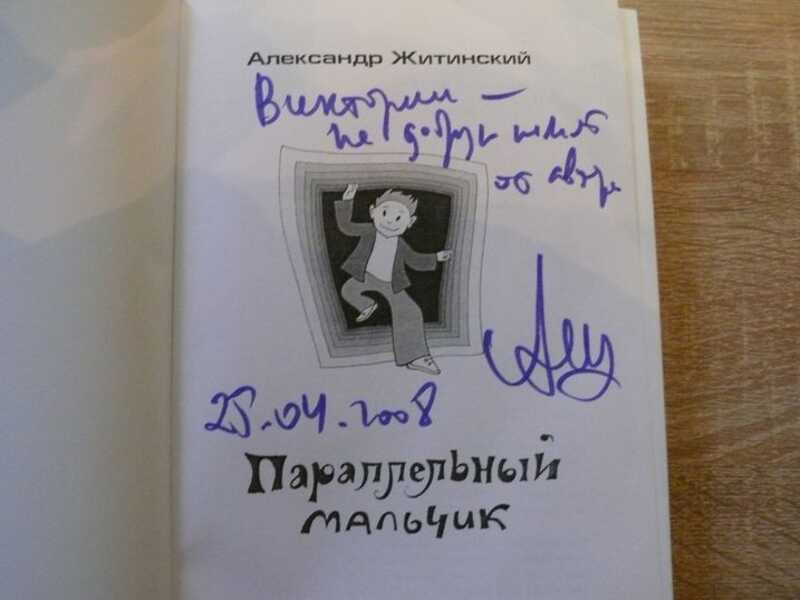 Александр Житинский
Виктории —
на добрую память
от автора
25.04.2008
Параллельный
мальчик